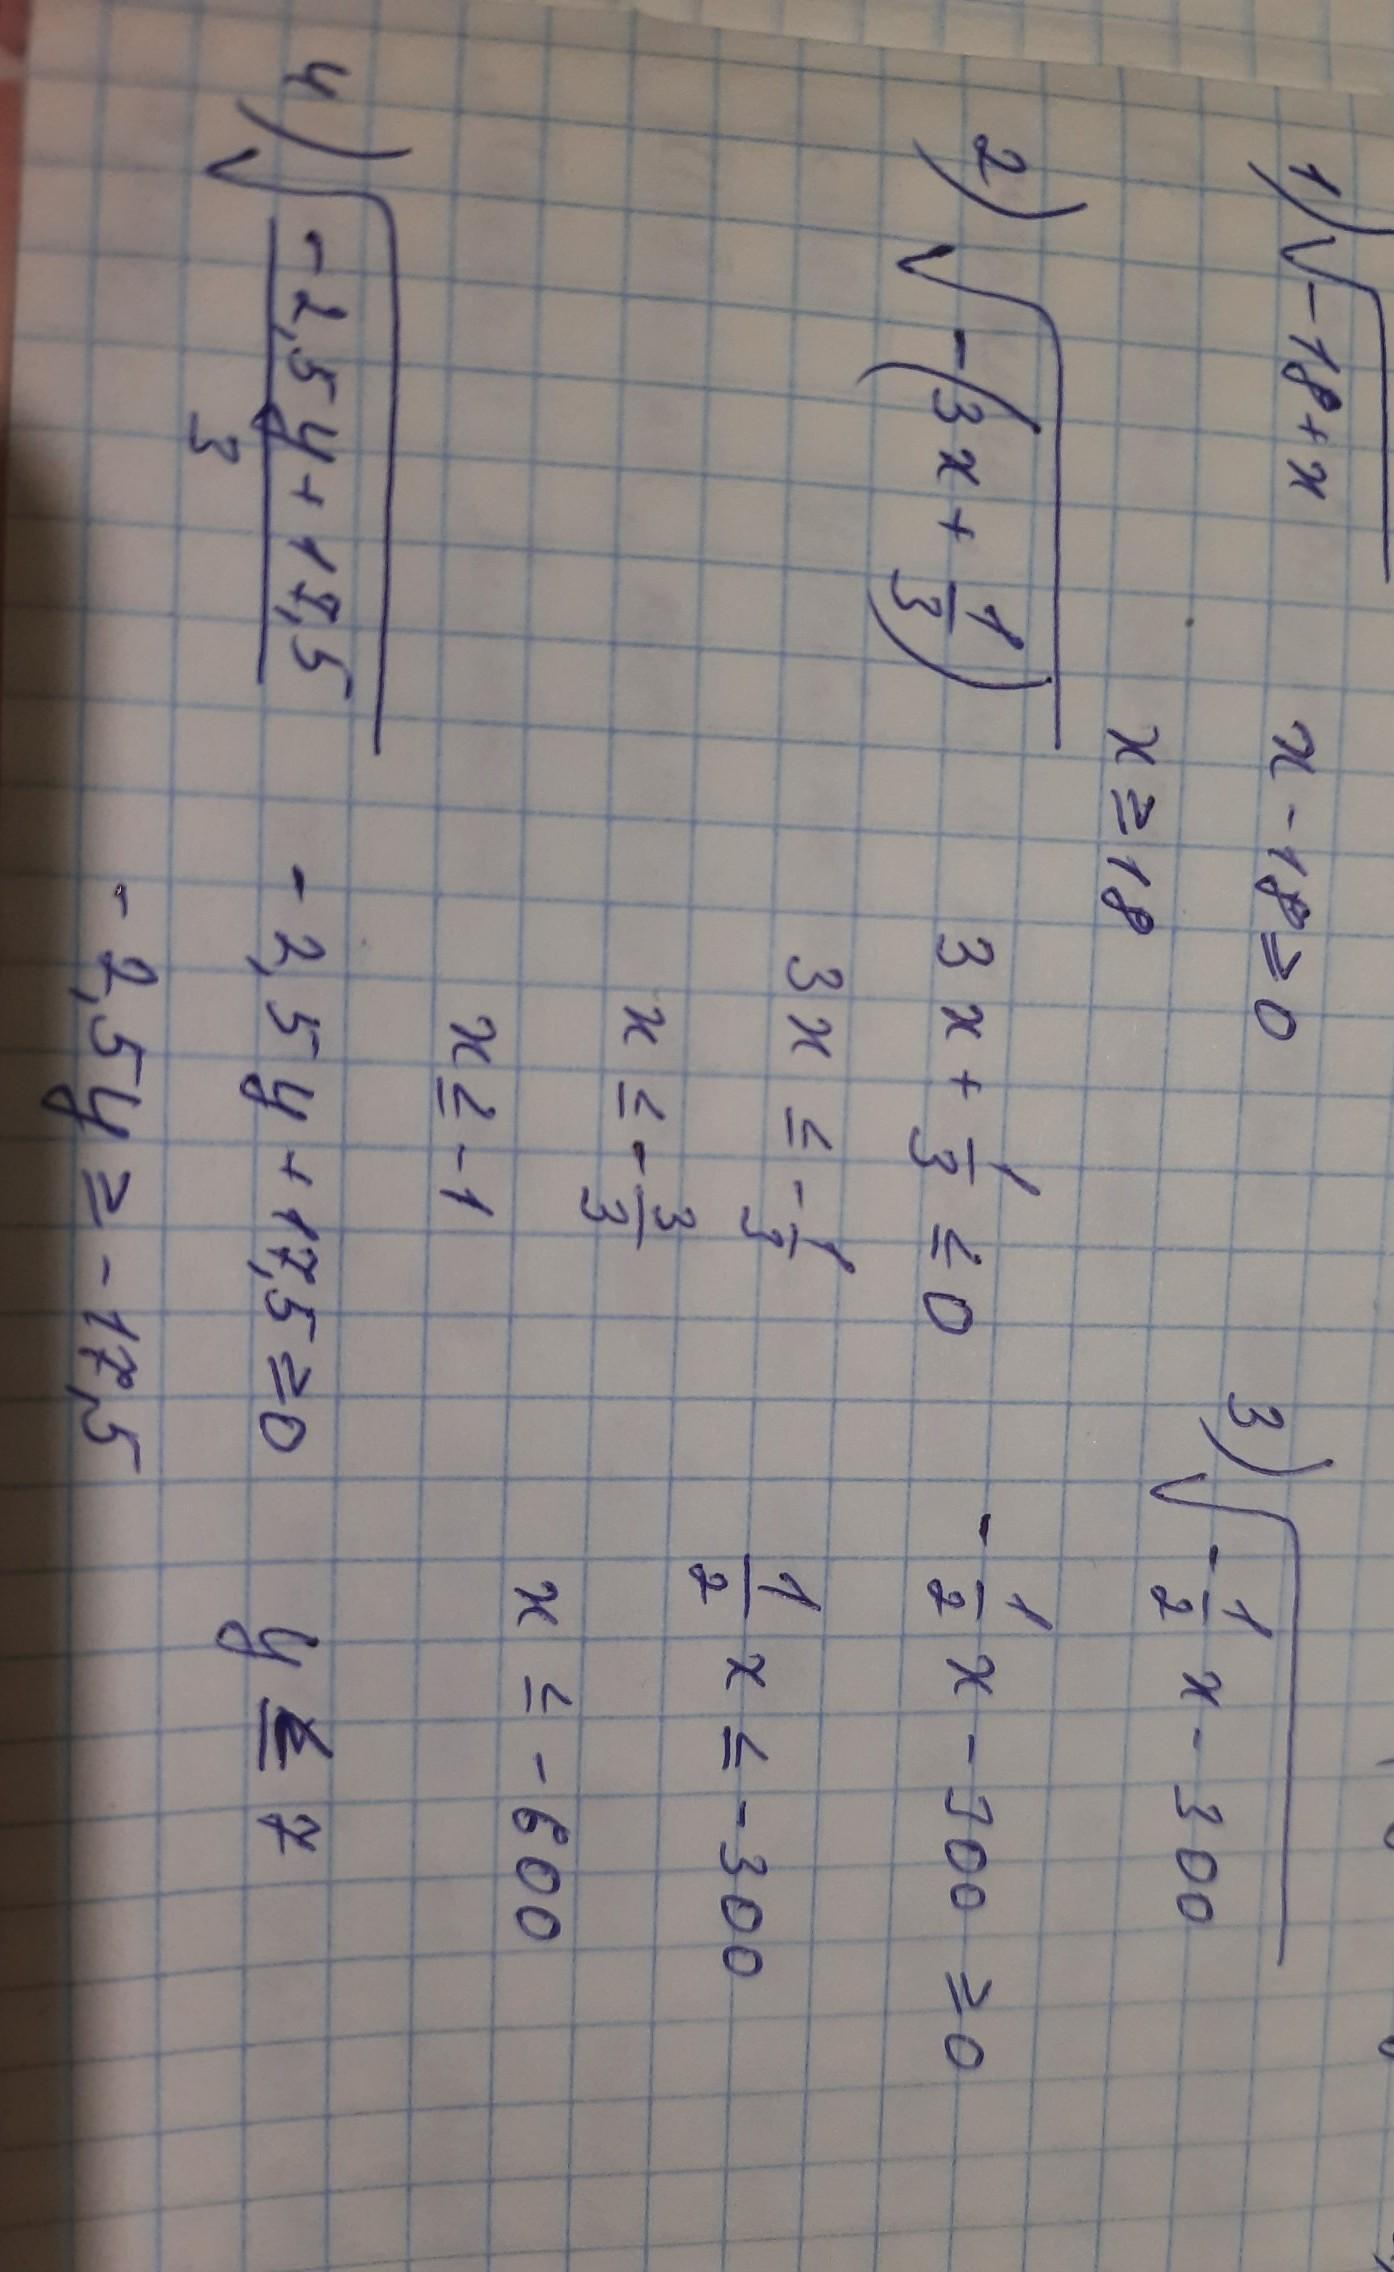 1) √(-18+x)
x - 18 ≥ 0
x ≥ 18
2) √(-(3x + 1/3))
3x + 1/3 ≤ 0
3x ≤ - 1/3
x ≤ - 3/3
x ≤ -1
3) √(-1/2 x - 300)
- 1/2 x - 300 ≥ 0
1/2 x ≤ - 300
x ≤ - 600
4) √((-2,5y + 17,5)/3)
- 2,5y + 17,5 ≥ 0
- 2,5y ≥ - 17,5
y ≤ 7